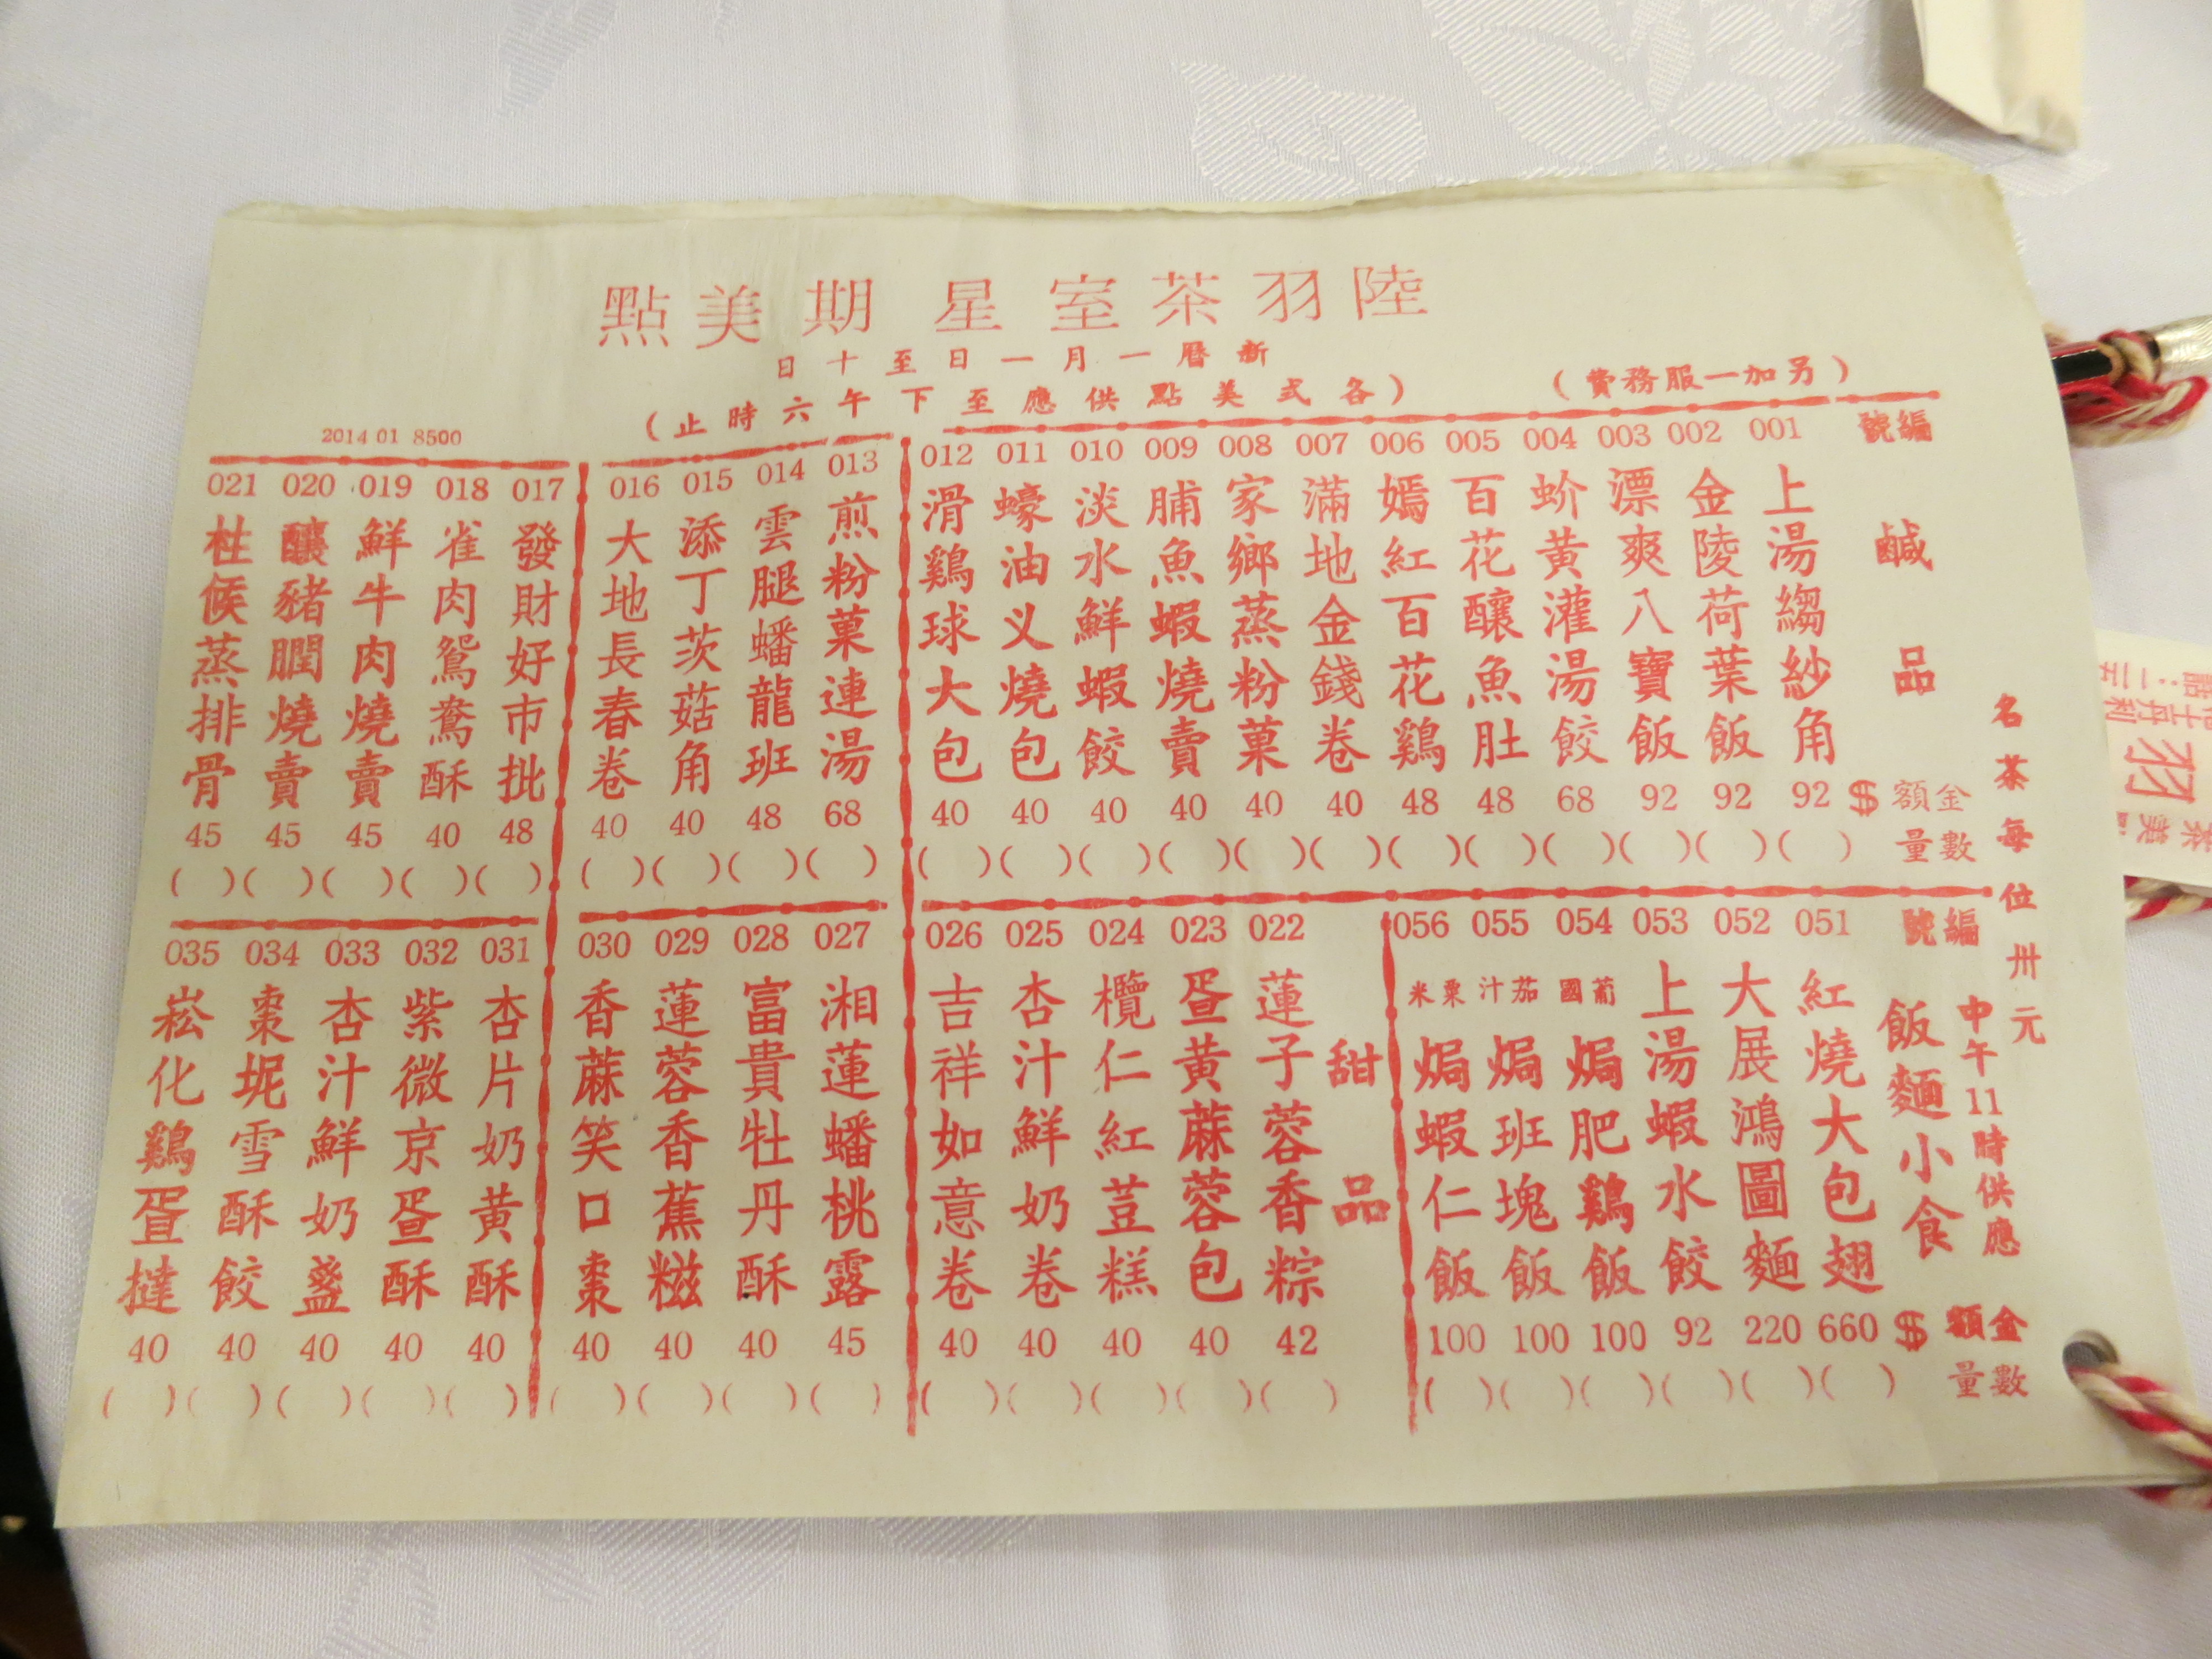 陸羽茶室星期美點
新曆一月一日至十日
(各式美點供應至下午六時止)
(另加一服務費)
2014 01 8500
名茶每位卅元
編號
鹹品
金額 $
數量
001 上湯縐紗角 92 ( )
002 金陵荷葉飯 92 ( )
003 漂爽八寶飯 92 ( )
004 蚧黃灌湯餃 68 ( )
005 百花釀魚肚 48 ( )
006 嫣紅百花鷄 48 ( )
007 滿地金錢卷 40 ( )
008 家鄉蒸粉菓 40 ( )
009 脯魚蝦燒賣 40 ( )
010 淡水鮮蝦餃 40 ( )
011 蠔油义燒包 40 ( )
012 滑鷄球大包 40 ( )
013 煎粉菓連湯 68 ( )
014 雲腿蟠龍班 48 ( )
015 添丁茨菇角 40 ( )
016 大地長春卷 40 ( )
017 發財好市批 48 ( )
018 雀肉鴛鴦酥 40 ( )
019 鮮牛肉燒賣 45 ( )
020 釀豬膶燒賣 45 ( )
021 柱候蒸排骨 45 ( )
編號
中午11時供應
飯麵小食
金額 $
數量
051 紅燒大包翅 660 ( )
052 大展鴻圖麵 220 ( )
053 上湯蝦水餃 92 ( )
054 葡國焗肥鷄飯 100 ( )
055 茄汁焗班塊飯 100 ( )
056 粟米焗蝦仁飯 100 ( )
甜品
022 蓮子蓉香粽 42 ( )
023 蛋黃蔴蓉包 40 ( )
024 欖仁紅荳糕 40 ( )
025 杏汁鮮奶卷 40 ( )
026 吉祥如意卷 40 ( )
027 湘蓮蟠桃露 45 ( )
028 富貴牡丹酥 40 ( )
029 蓮蓉香蕉糍 40 ( )
030 香蔴笑口棗 40 ( )
031 杏片奶黃酥 40 ( )
032 紫微京蛋酥 40 ( )
033 杏汁鮮奶盞 40 ( )
034 棗坭雪酥餃 40 ( )
035 崧化鷄蛋撻 40 ( )
羽